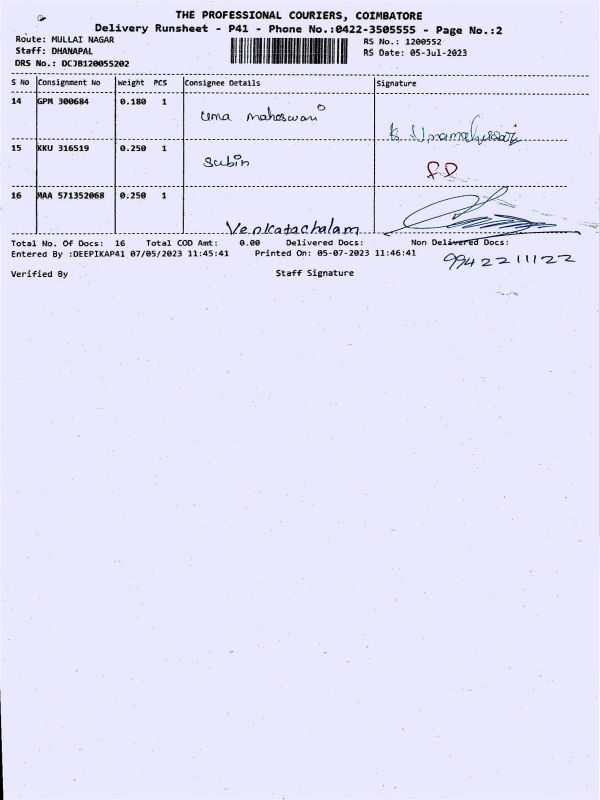 THE PROFESSIONAL COURIERS, COIMBATORE
Delivery Runsheet - P41 - Phone No.:0422-3505555 - Page No.:2
Route: MULLAI NAGAR
Staff: DHANAPAL
DRS No.: DCJB120055202
RS No.: 1200552
RS Date: 05-Jul-2023
S No Consignment No Weight PCS Consignee Details Signature
14 GPM 300684 0.180 1 Uma maheswari K. Umamaheswari
15 KKU 316519 0.250 1 Subin
16 MAA 571352068 0.250 1 Venkatachalam
Total No. Of Docs: 16 Total COD Amt: 0.00 Delivered Docs: Non Delivered Docs:
Entered By :DEEPIKAP41 07/05/2023 11:45:41 Printed On: 05-07-2023 11:46:41
9942211122
Verified By Staff Signature